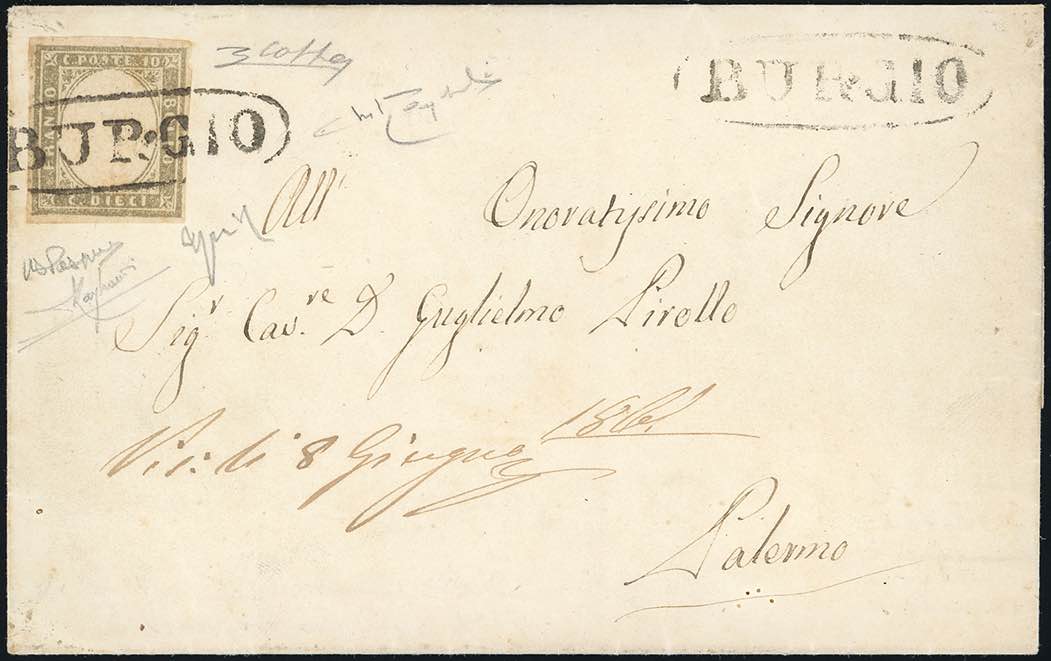 C. POSTE 10
FRANCO
BOLLO
C. DIECI
BURGIO
BURGIO
All' Onoratissimo Signore
Sig.r Cav.re D. Guglielmo Pirollo
8 Giugno 1861
Palermo